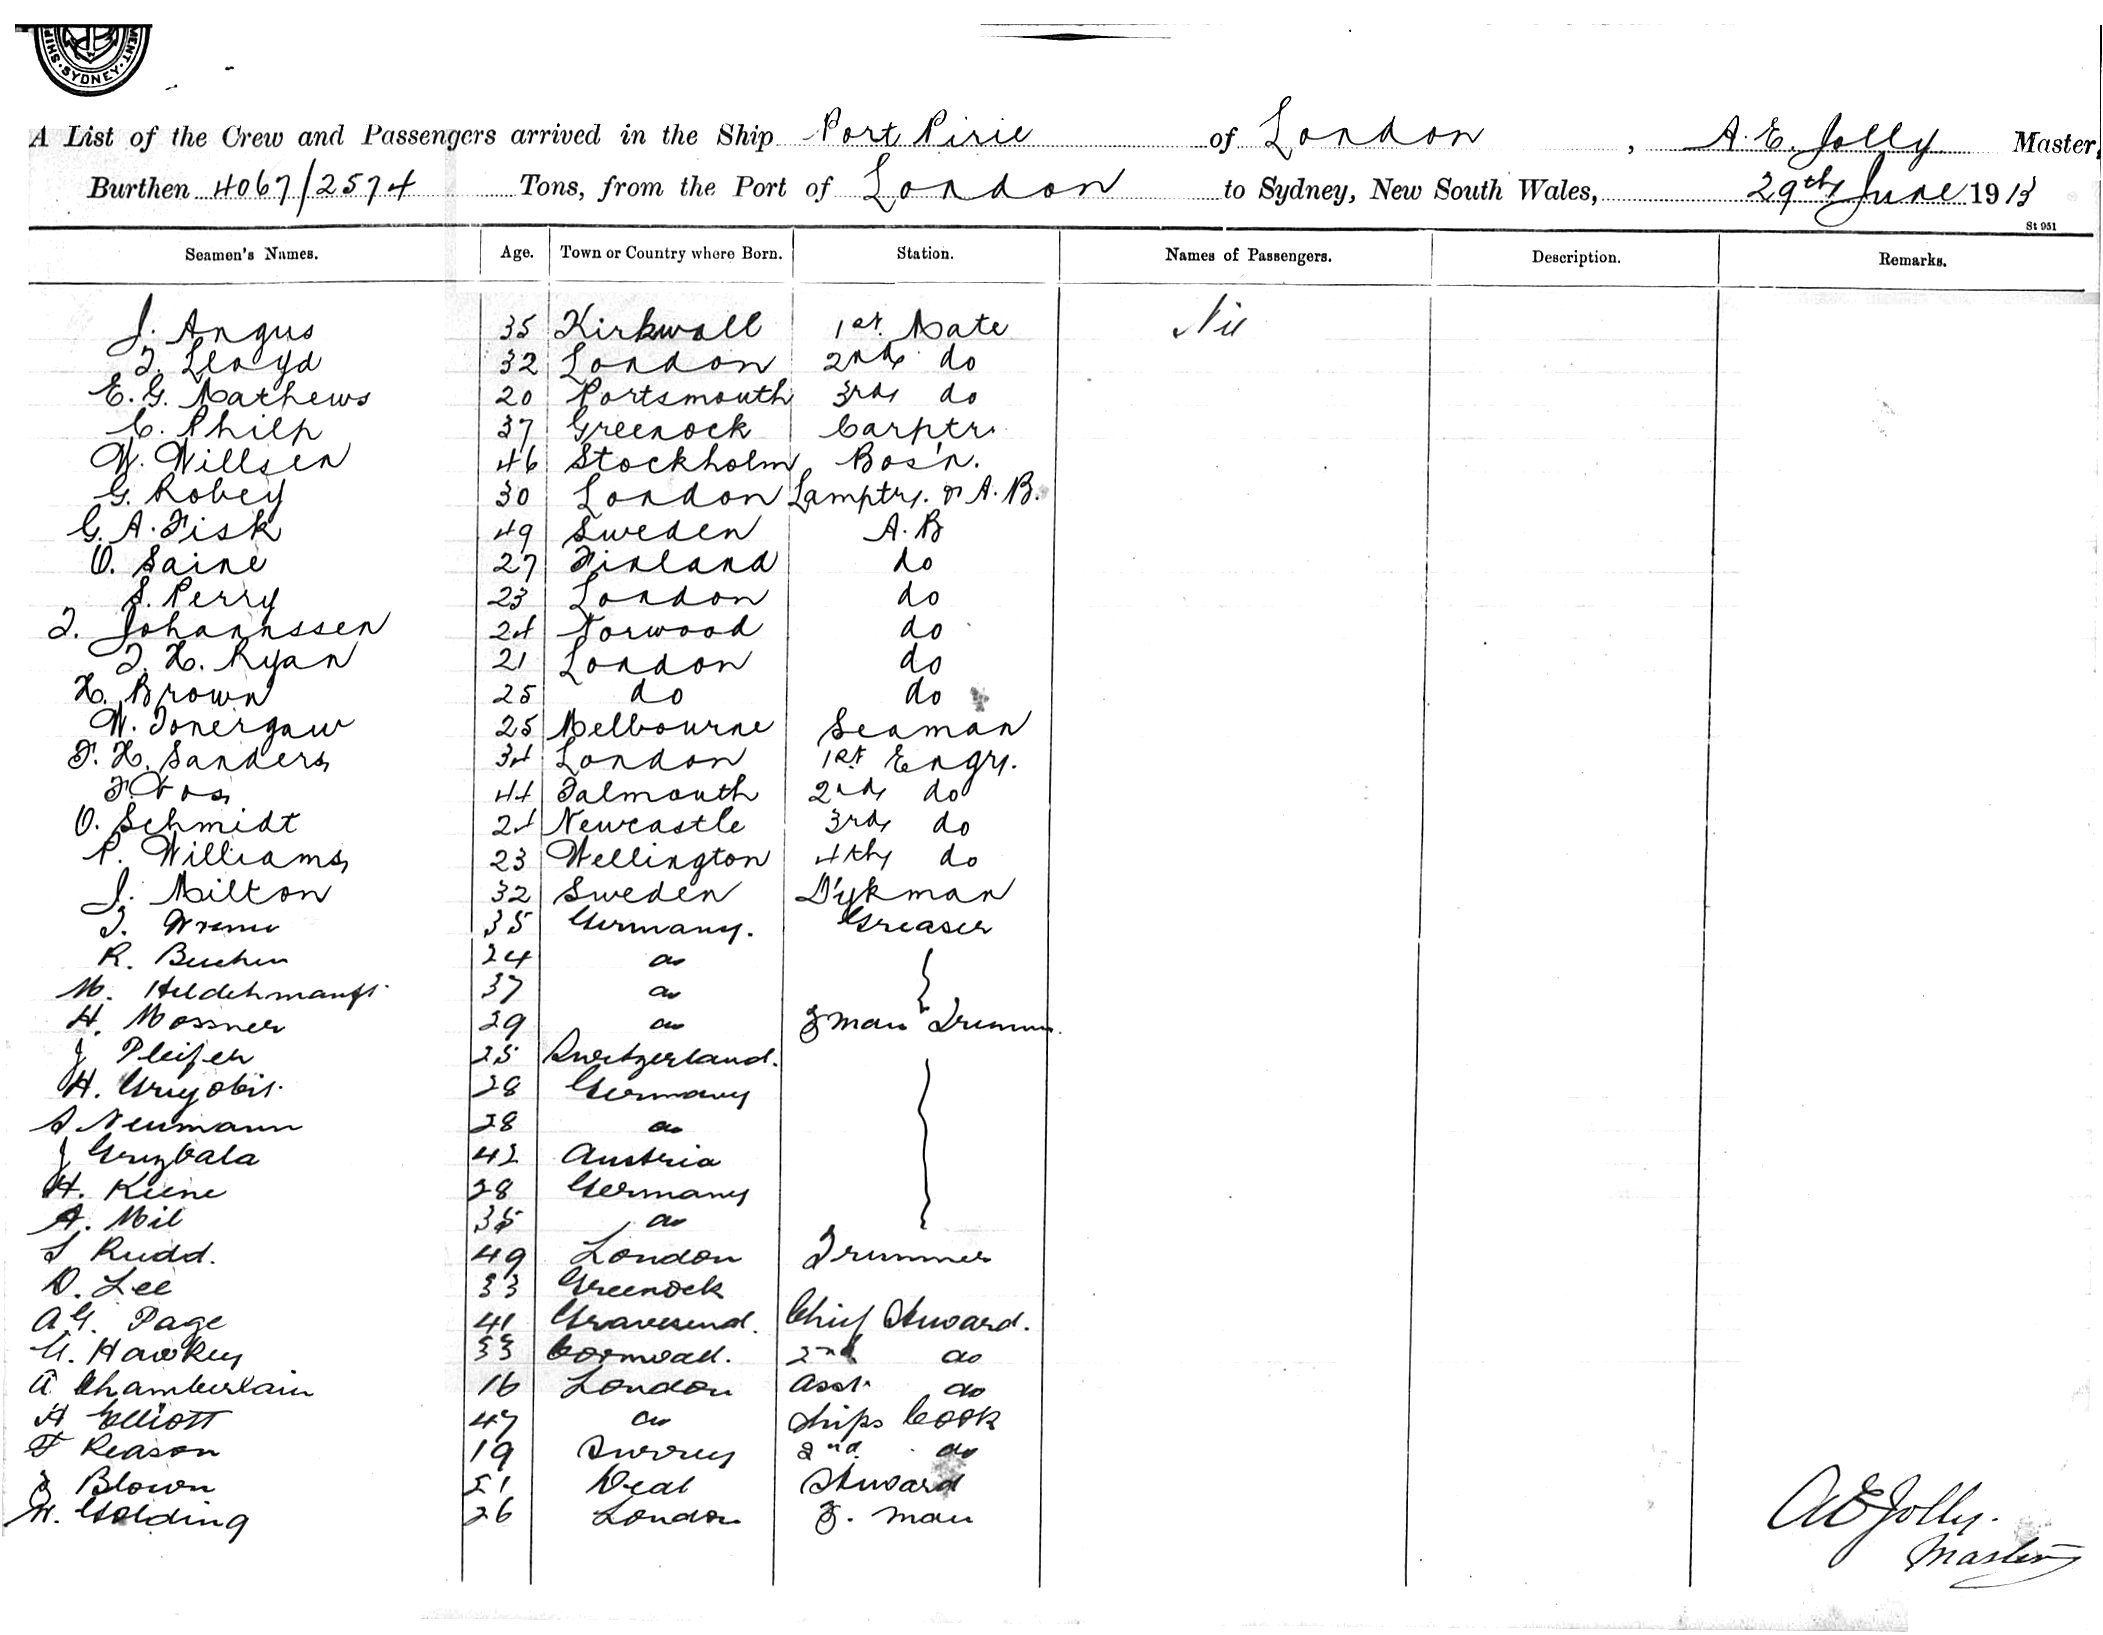 SYDNEY
A List of the Crew and Passengers arrived in the Ship Port Pirie of London, A. E. Jolly Master,
Burthen 4067/2574 Tons, from the Port of London to Sydney, New South Wales, 29th June 1913
St 951
Seamen's Names. Age. Town or Country where Born. Station. Names of Passengers. Description. Remarks.
J. Angus 35 Kirkwall 1st. Mate Nil
T. Lloyd 32 London 2nd do
E. G. Mathews 20 Portsmouth 3rd do
C. Philp 37 Greenock Carptr.
W. Willsen 46 Stockholm Bos'n.
G. Robey 30 London Lamptr. & A. B.
G. A. Fisk 49 Sweden A. B
O. Saine 27 Finland do
S. Perry 23 London do
T. Johannssen 24 Norwood do
T. H. Ryan 21 London do
H. Brown 25 do do
W. 25 Melbourne Seaman
F. H. Sanders 34 London 1st Engr.
F. Vos 44 Falmouth 2nd do
O. Schmidt 24 Newcastle 3rd do
P. Williams 23 Wellington 4th do
J. Milton 32 Sweden D'ykman
35 Germany. Greaser
R. 24 do
M. 37 do
H. Mossner 29 do F man Trimmer
J 25 Switzerland.
H. 28 Germany
S Neumann 28 do
J Gruzbala 42 Austria
H. Keene 28 Germany
A. Mil 35 do
S Rudd. 49 London Trimmer
D. Lee 33 Greenock
A G. Page 41 Gravesend. Chief Steward.
G. Hawkey 33 Cornwall. 2nd do
A Chamberlain 16 London Asst. do
H Elliott 47 do Ships Cook
F Reason 19 Surrey 2nd do
J Blown 51 Deal Steward
H. Golding 26 London F. man
A E Jolly.
Master